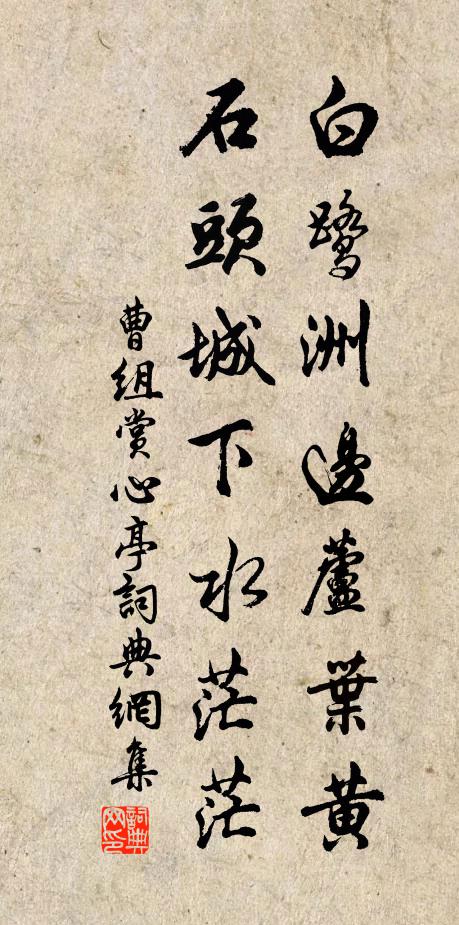 白鷺洲邊蘆葉黃
石頭城下水茫茫
曹組賞心亭詞典網集
詞典網印